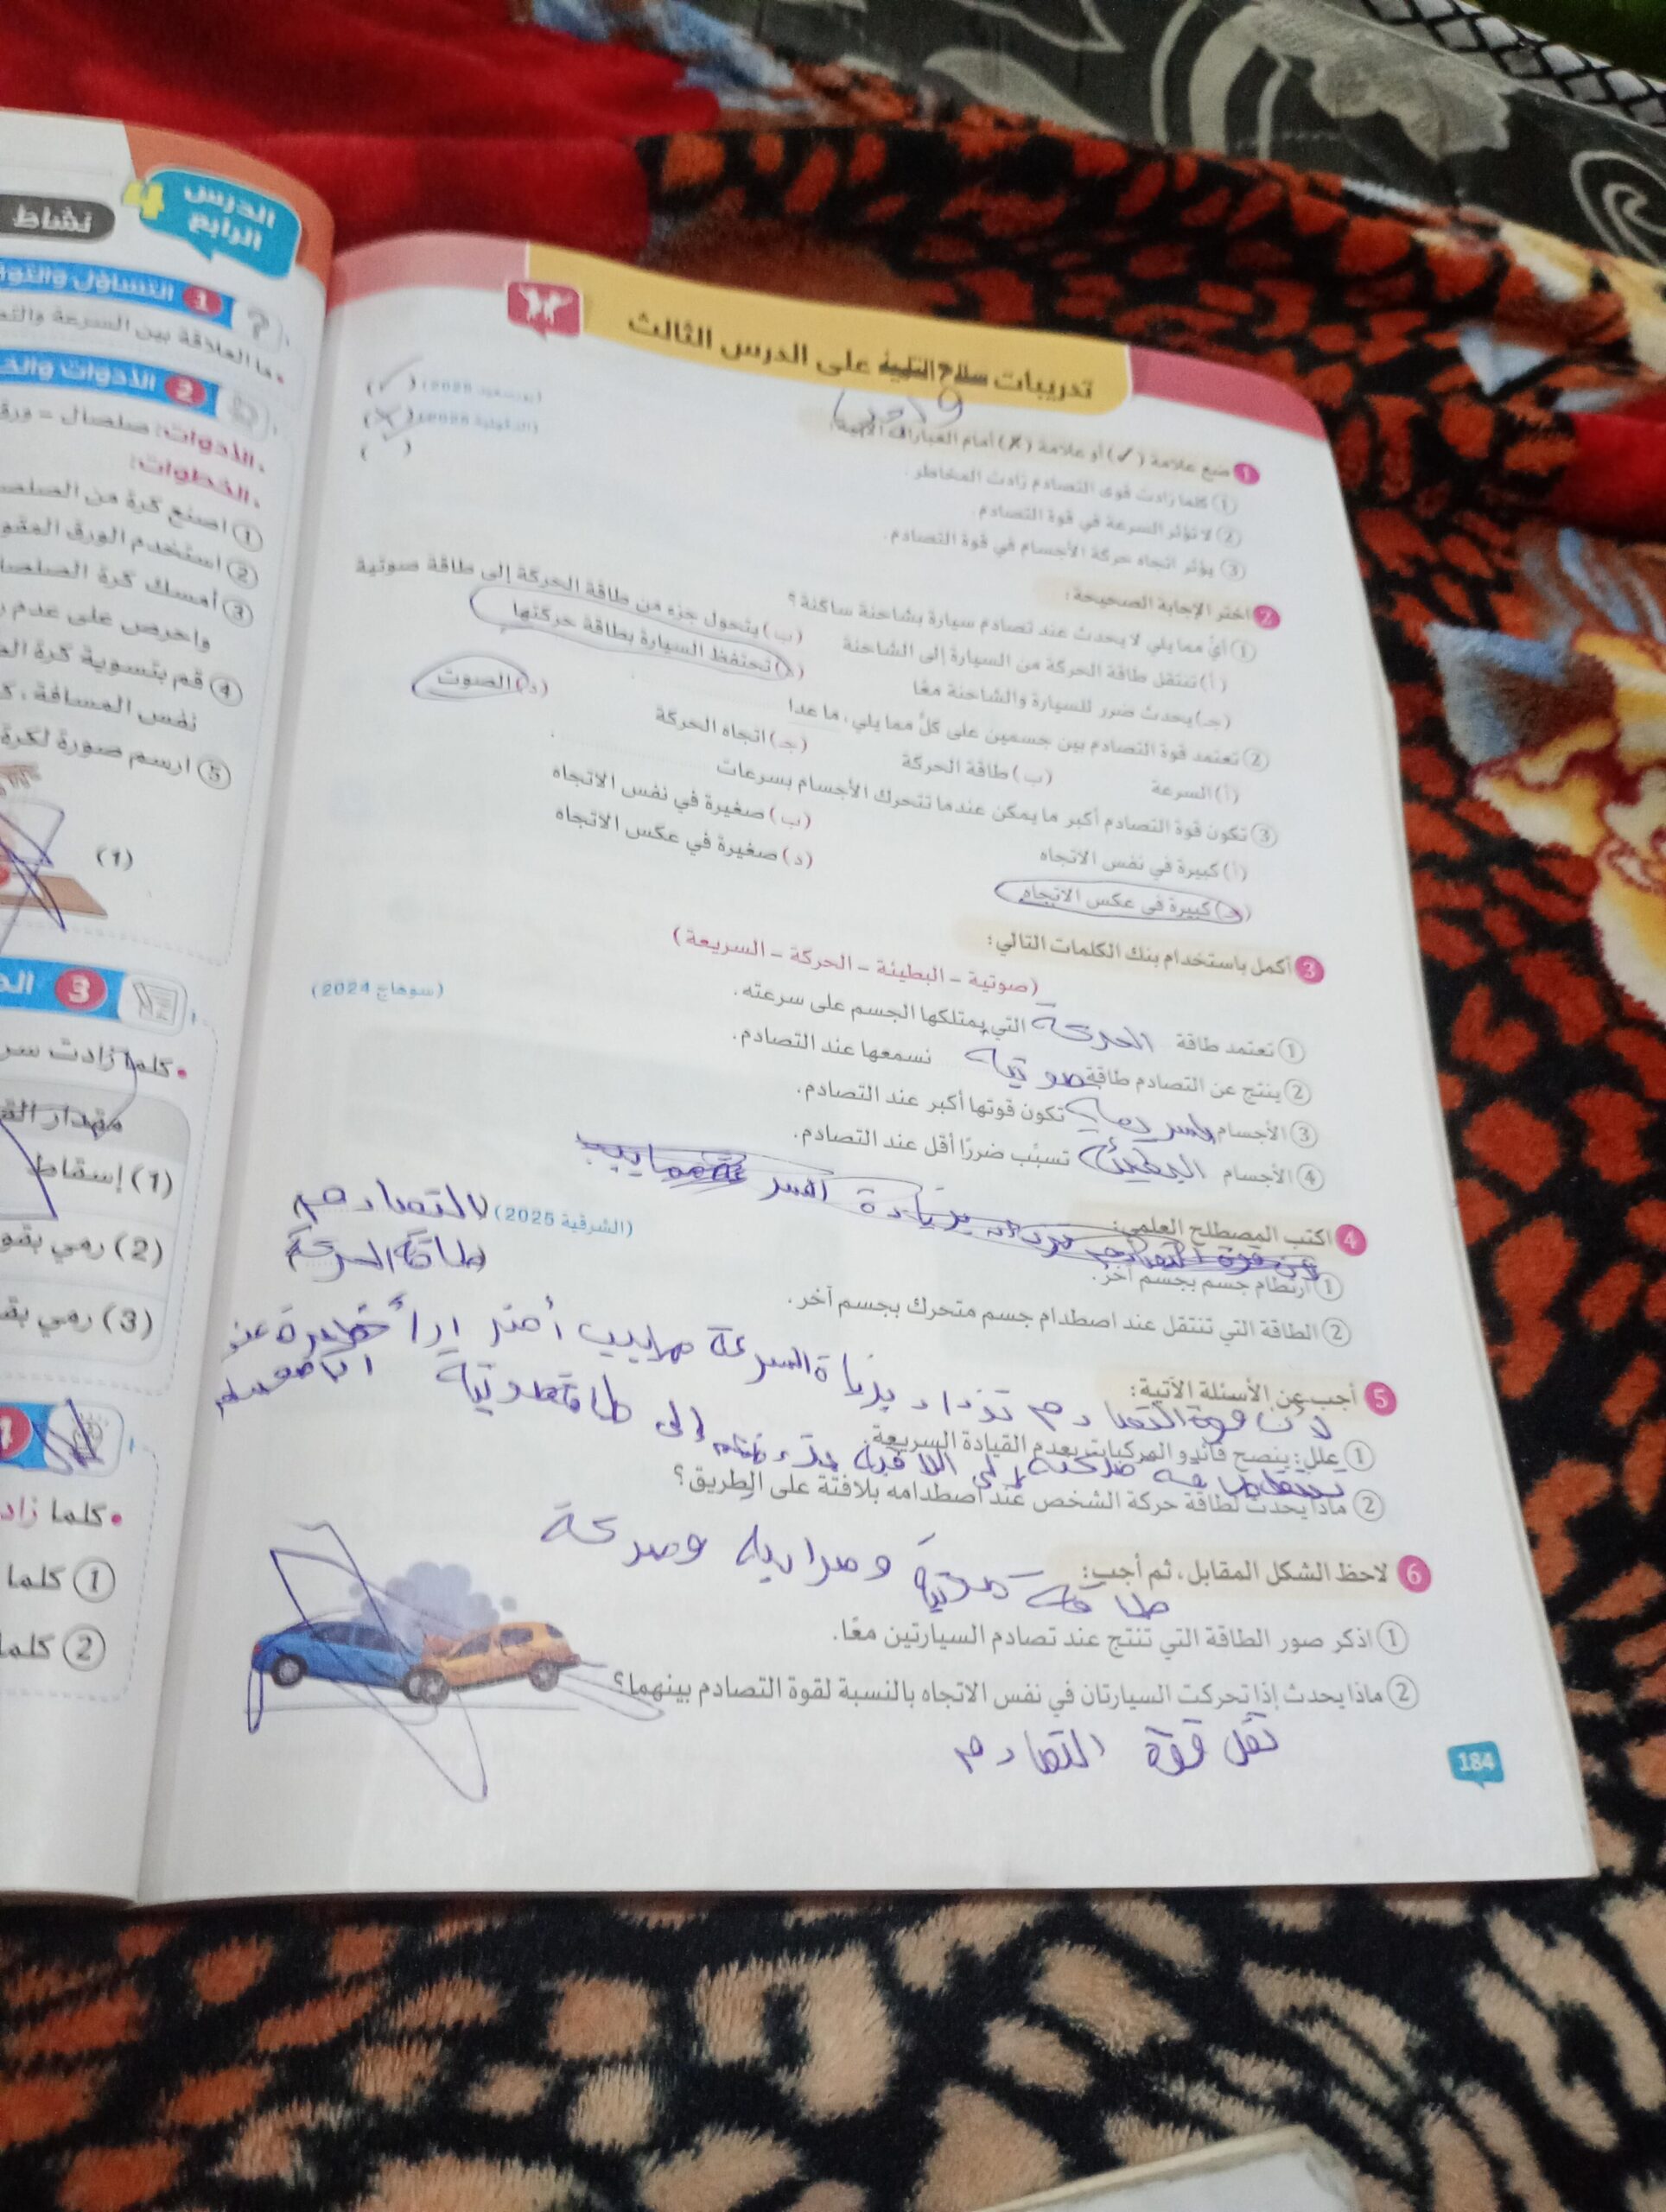 الدرس الرابع 4
نشاط
1 التساؤل والتوا
ما العلاقة بين السرعة والتص
2 الأدوات والخ
الأدوات: صلصال - ورق
الخطوات:
1 اصنع كرة من الصلصا
2 استخدم الورق المقو
3 أمسك كرة الصلصا
واحرص على عدم
4 قم بتسوية كرة الص
نفس المسافة، ك
5 ارسم صورة لكرة
(1)
3
كلما زادت سر
مقدار الق
(1) إسقاط
(2) رمي بقو
(3) رمي بقو
كلما زاد
1 كلما
2 كلما
تدريبات سلاح التلميذ على الدرس الثالث
1 ضع علامة (✓) أو علامة (✗) أمام العبارات الآتية:
1 كلما زادت قوى التصادم زادت المخاطر. (بورسعيد 2025) (✓)
2 لا تؤثر السرعة في قوة التصادم. (الدقهلية 2025) (✗)
3 يؤثر اتجاه حركة الأجسام في قوة التصادم. ( )
2 اختر الإجابة الصحيحة:
1 أيٌّ مما يلي لا يحدث عند تصادم سيارة بشاحنة ساكنة؟
(أ) تنتقل طاقة الحركة من السيارة إلى الشاحنة (ب) يتحول جزء من طاقة الحركة إلى طاقة صوتية
(جـ) يحدث ضرر للسيارة والشاحنة معًا (د) تحتفظ السيارة بطاقة حركتها
2 تعتمد قوة التصادم بين جسمين على كلٍّ مما يلي، ما عدا
(أ) السرعة (ب) طاقة الحركة (جـ) اتجاه الحركة (د) الصوت
3 تكون قوة التصادم أكبر ما يمكن عندما تتحرك الأجسام بسرعات
(أ) كبيرة في نفس الاتجاه (ب) صغيرة في نفس الاتجاه
(جـ) كبيرة في عكس الاتجاه (د) صغيرة في عكس الاتجاه
3 أكمل باستخدام بنك الكلمات التالي:
(صوتية - البطيئة - الحركة - السريعة)
1 تعتمد طاقة الحركة التي يمتلكها الجسم على سرعته. (سوهاج 2024)
2 ينتج عن التصادم طاقة صوتية نسمعها عند التصادم.
3 الأجسام السريعة تكون قوتها أكبر عند التصادم.
4 الأجسام البطيئة تسبِّب ضررًا أقل عند التصادم.
4 اكتب المصطلح العلمي:
1 ارتطام جسم بجسم آخر. (الشرقية 2025) التصادم
2 الطاقة التي تنتقل عند اصطدام جسم متحرك بجسم آخر. طاقة الحركة
5 أجب عن الأسئلة الآتية:
لأن قوة التصادم تزداد بزيادة السرعة
1 علل: ينصح قائدو المركبات بعدم القيادة السريعة.
إلى طاقة صوتية
2 ماذا يحدث لطاقة حركة الشخص عند اصطدامه بلافتة على الطريق؟
6 لاحظ الشكل المقابل، ثم أجب:
طاقة صوتية وحرارية وحركة
1 اذكر صور الطاقة التي تنتج عند تصادم السيارتين معًا.
2 ماذا يحدث إذا تحركت السيارتان في نفس الاتجاه بالنسبة لقوة التصادم بينهما؟
تقل قوة التصادم
184